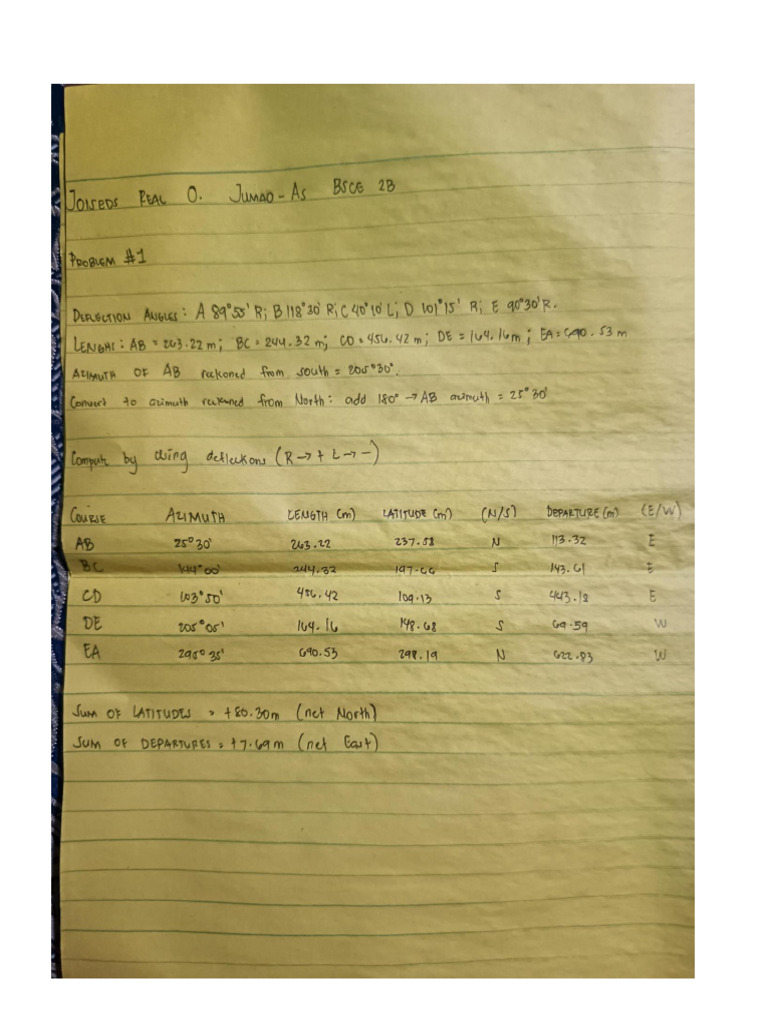 JOISEDS REAL O. JUMAO-AS BSCE 2B
PROBLEM #1
DEFLECTION ANGLES: A 89°55' R; B 118°30' R; C 40°10' L; D 101°15' R; E 90°30' R.
LENGHT: AB = 263.22 m; BC = 244.32 m; CD = 456.42 m; DE = 164.16m; EA = 690.53 m
AZIMUTH OF AB reckoned from south = 205°30'.
Convert to azimuth reckoned from North: add 180° → AB azimuth = 25°30'
Compute by using deflections (R → + L → -)
COURSE AZIMUTH LENGTH (m) LATITUDE (m) (N/S) DEPARTURE (m) (E/W)
AB 25°30' 263.22 237.58 N 113.32 E
BC 144°00' 244.32 197.66 S 143.61 E
CD 103°50' 456.42 109.13 S 443.18 E
DE 205°05' 164.16 148.68 S 69.59 W
EA 295°35' 690.53 298.19 N 622.83 W
SUM OF LATITUDES = +80.30m (net North)
SUM OF DEPARTURES = +7.69m (net East)